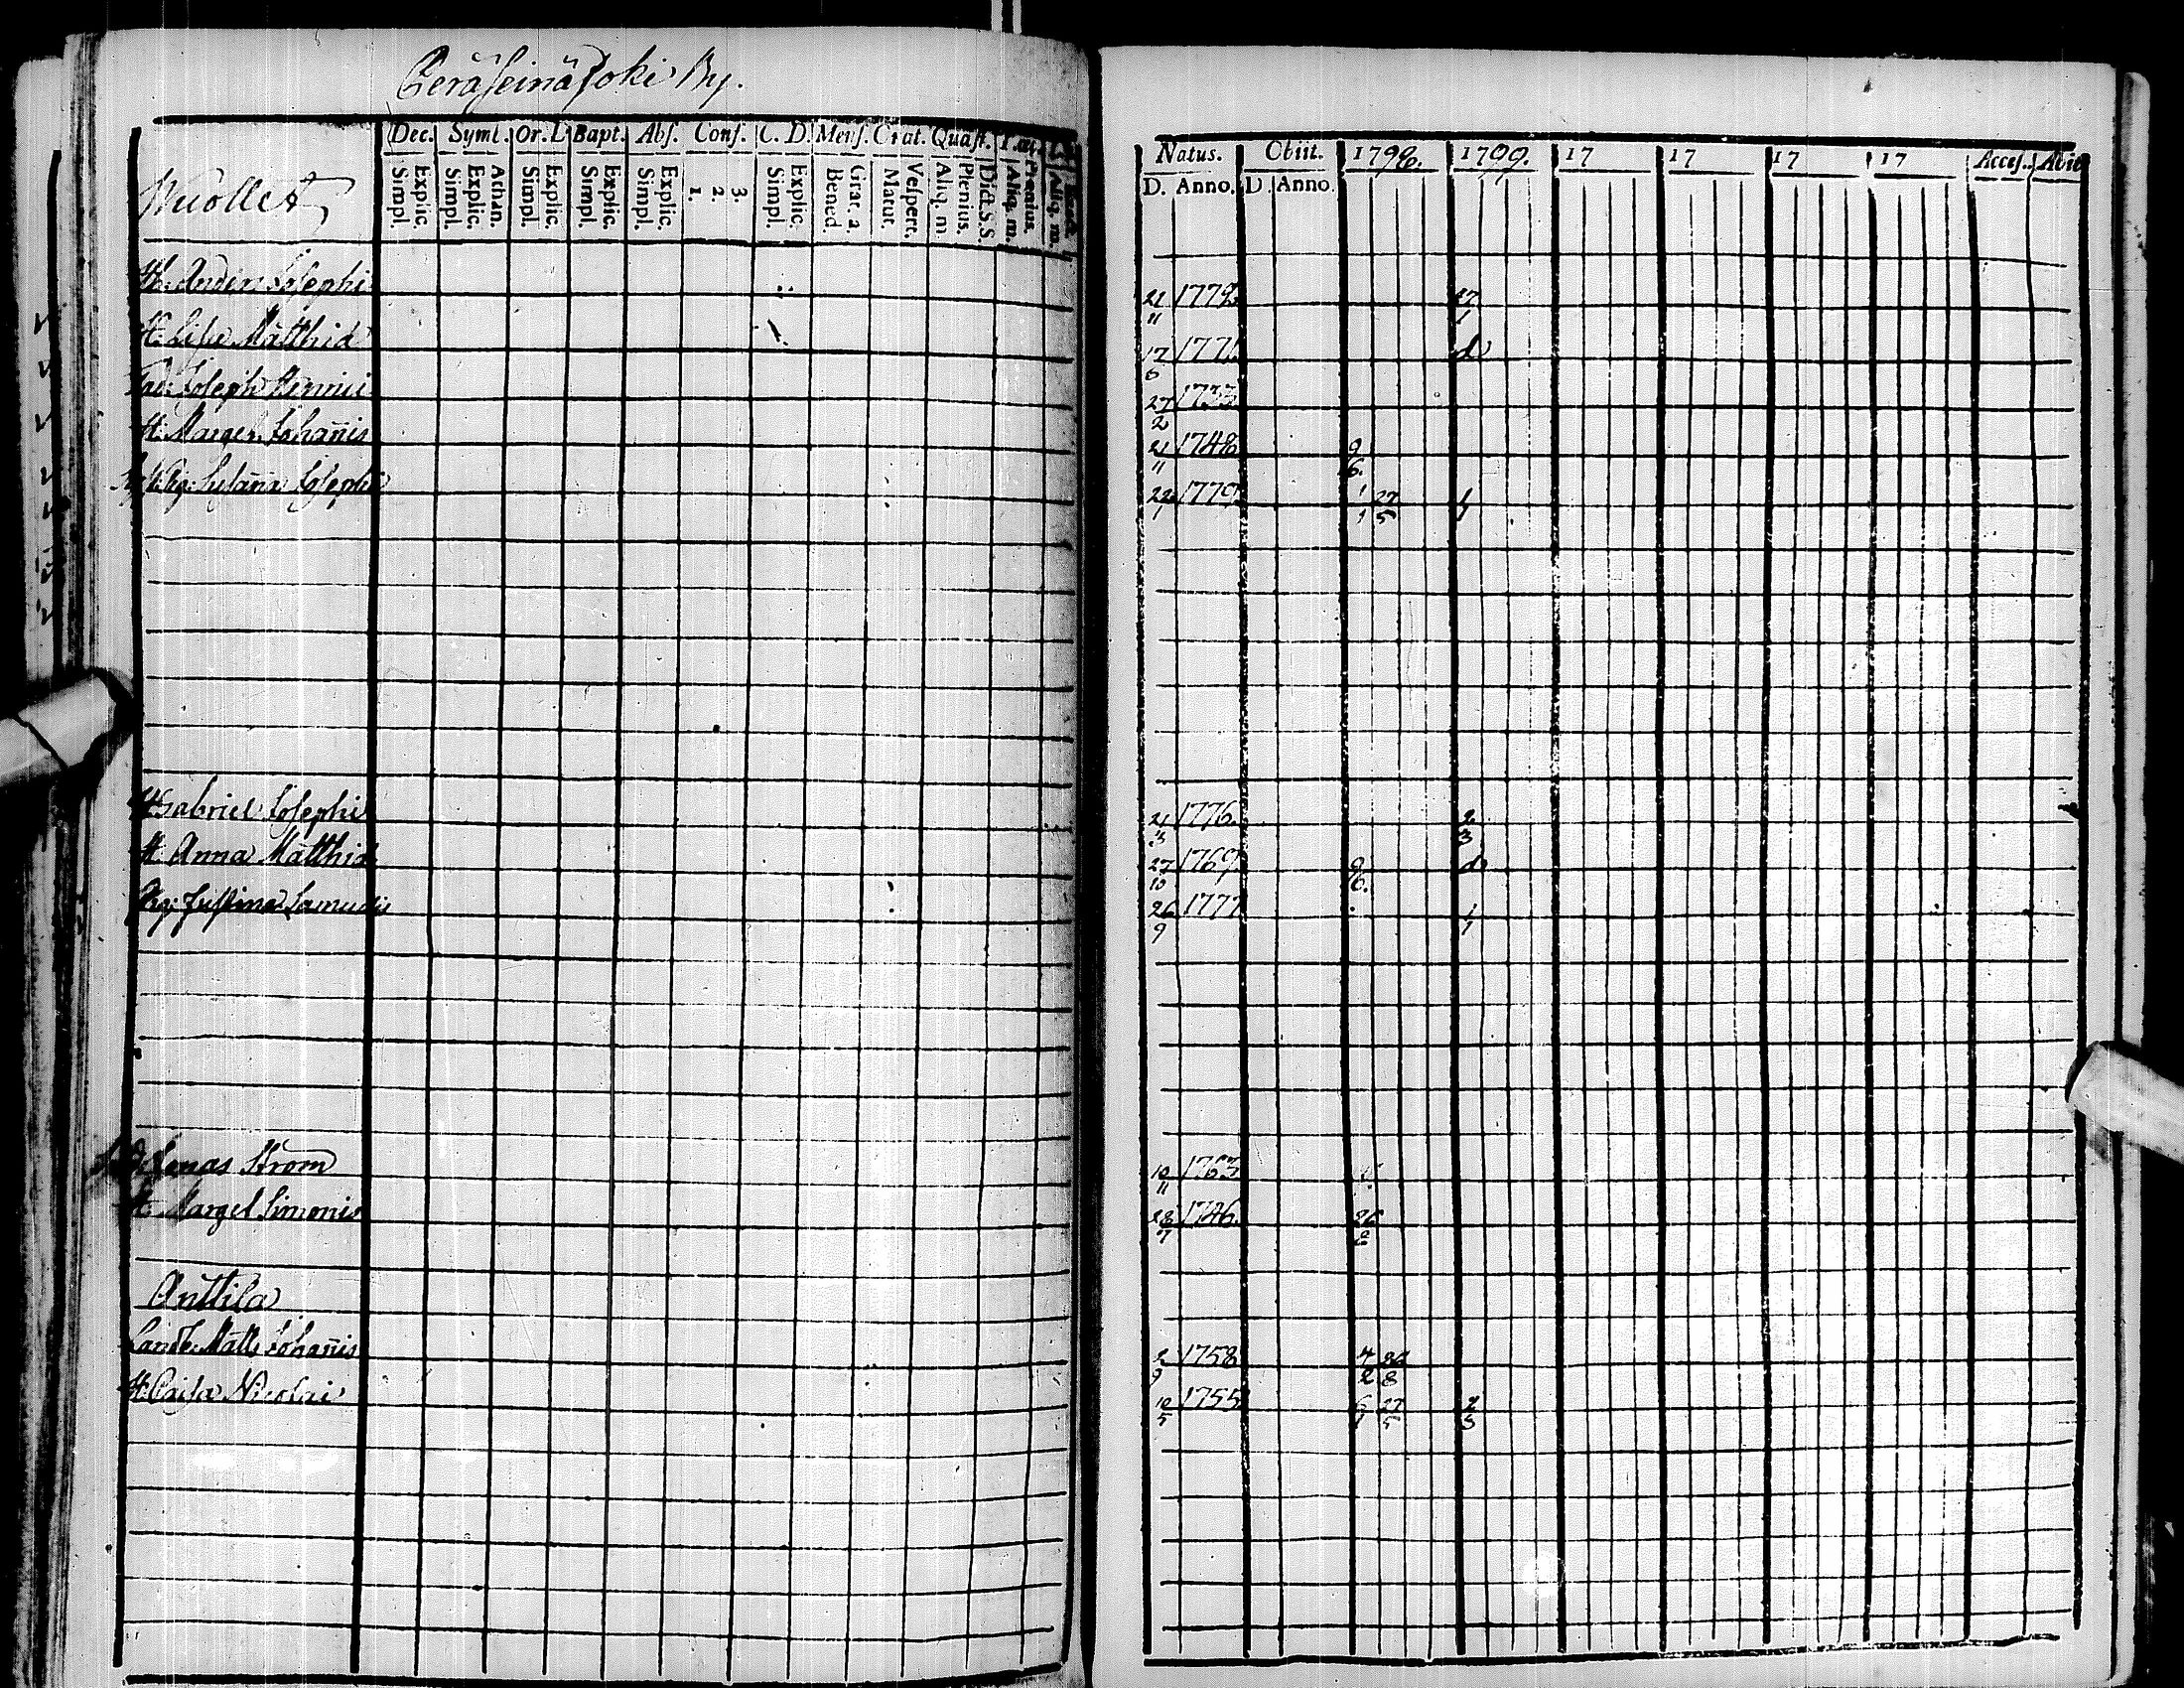 Peräseinäjoki By.
Dec. Symb. Or. D. Bapt. Abs. Conf. C. D. Mens. Orat. Quæst.
Simpl. Explic. Simpl. Explic. Athan. Simpl. Explic. Simpl. Explic. Simpl. Explic. 1. 2. 3. Simpl. Explic. Bened. Grat. a Matut. Vespert. Aliq. m. Plenius. Dict. S. S. Aliq. m. Plenius. Aliq. m.
Natus. Obiit. 1798. 1799. 17 17 17 17 Acces. Abiit
D. Anno. D. Anno.
Wuollet
H: Anders Josephi 21/11 1772 27/1
H: Lisa Matthiæ 17/6 1771 d
Joseph 27/2 1733
H: Marget Johan̄is 21/11 1748 9/6
Pig: Susan̄a Josephi 22/1 1779 1/1 27/5 1/1
Gabriel Josephi 21/3 1776. 2/3
H Anna Matthiæ 27/10 1769 9/6. d
Pig: Justina Samuelis 26/9 1777 1/1
Jonas Ström 10/11 1763
H: Marget Simonis 28/7 1746. 26/2
Anttila
Matts Johan̄is 2/9 1758
H: Caisa Nicolai 10/5 1755 6/1 27/5 2/3